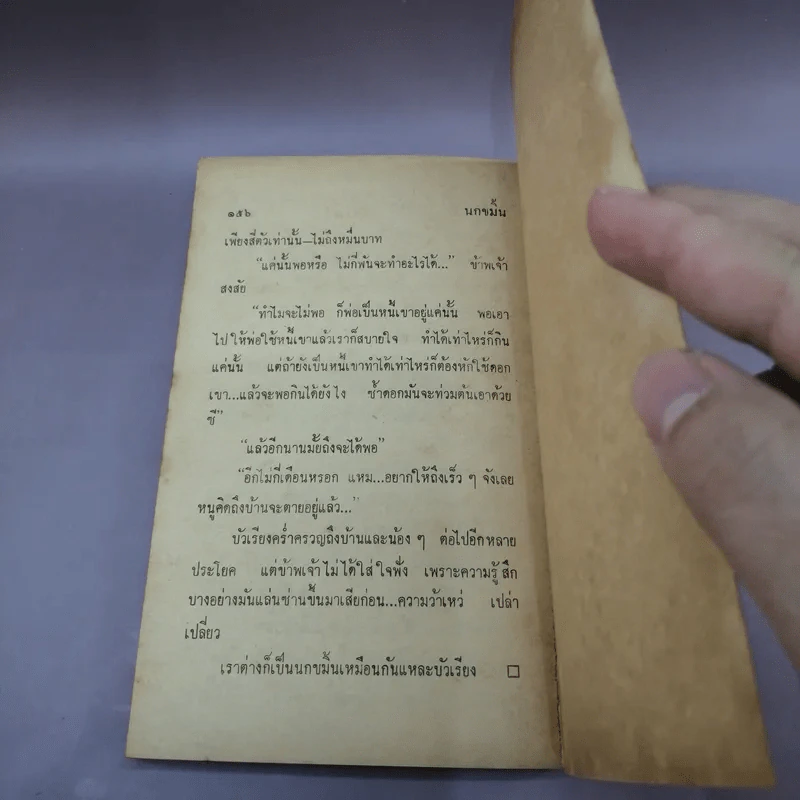 ๑๕๖ นกขมิ้น
เพียงสี่ตัวเท่านั้น—ไม่ถึงหมื่นบาท
“แค่นั้นพอหรือ ไม่กี่พันจะทำอะไรได้...” ข้าพเจ้า
สงสัย
“ทำไมจะไม่พอ ก็พ่อเป็นหนี้เขาอยู่แค่นั้น พอเอา
ไปให้พ่อใช้หนี้เขาแล้วเราก็สบายใจ ทำได้เท่าไหร่ก็กิน
แค่นั้น แต่ถ้ายังเป็นหนี้เขาทำได้เท่าไหร่ก็ต้องหักใช้ดอก
เขา...แล้วจะพอกินได้ยังไง ซ้ำดอกมันจะท่วมต้นเอาด้วย
ซี”
“แล้วอีกนานมั้ยถึงจะได้พอ”
“อีกไม่กี่เดือนหรอก แหม...อยากให้ถึงเร็ว ๆ จังเลย
หนูคิดถึงบ้านจะตายอยู่แล้ว...”
บัวเรียงคร่ำครวญถึงบ้านและน้อง ๆ ต่อไปอีกหลาย
ประโยค แต่ข้าพเจ้าไม่ได้ใส่ใจฟัง เพราะความรู้สึก
บางอย่างมันแล่นซ่านขึ้นมาเสียก่อน...ความว้าเหว่ เปล่า
เปลี่ยว
เราต่างก็เป็นนกขมิ้นเหมือนกันแหละบัวเรียง □